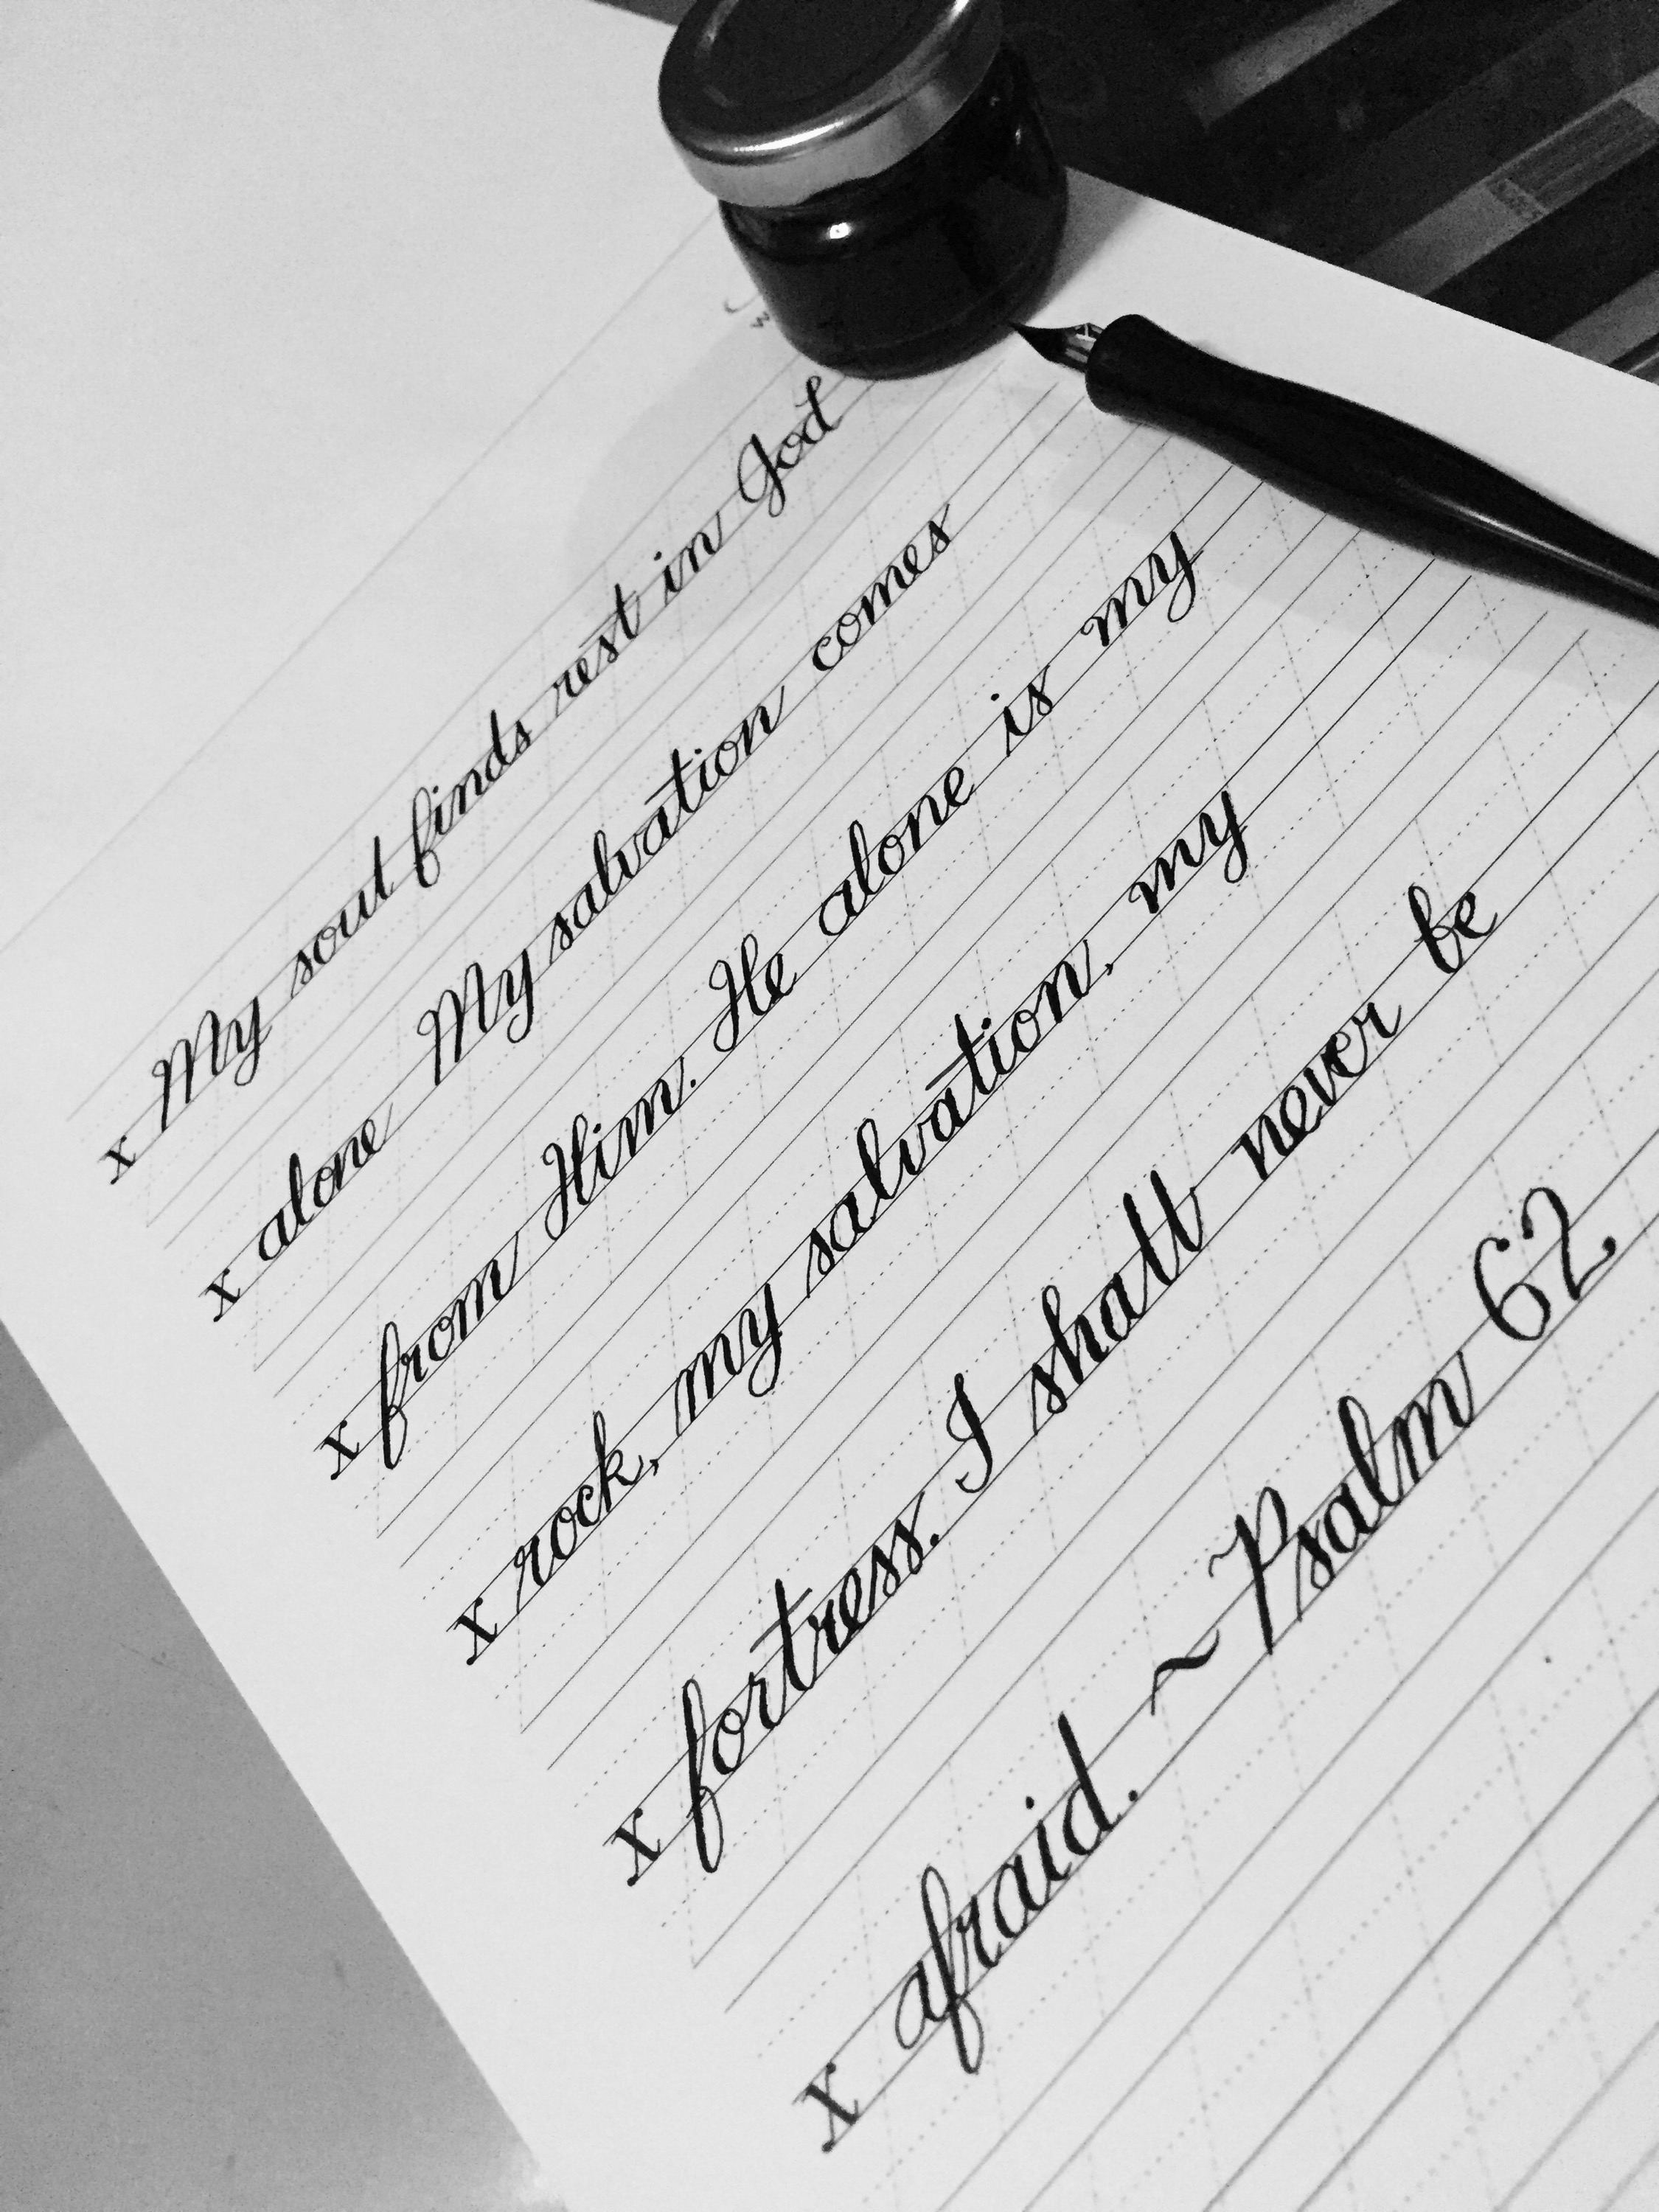 x My soul finds rest in God
x alone My salvation comes
x from Him. He alone is my
x rock, my salvation, my
x fortress. I shall never be
x afraid. ~Psalm 62.